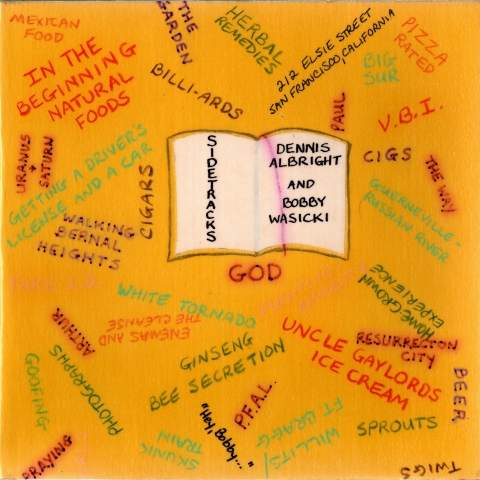 MEXICAN
FOOD
THE
GARDEN
HERBAL
REMEDIES
212 ELSIE STREET
SAN FRANCISCO, CALIFORNIA
PIZZA
RATED
IN THE
BEGINNING
NATURAL
FOODS
BILLI-ARDS
BIG
SUR
PAUL
V.B.I.
URANUS
+
SATURN
GETTING A DRIVER'S
LICENSE AND A CAR
CIGARS
SIDETRACKS
DENNIS
ALBRIGHT
AND
BOBBY
WASICKI
CIGS
THE WAY
GUERNEVILLE-
RUSSIAN RIVER
WALKING
BERNAL
HEIGHTS
GOD
FAKE I.D.
WHITE TORNADO
HOMEGROWN
EXPERIENCE
ARTHUR
ENEMAS AND
THE CLEANSE
UNCLE GAYLORDS
ICE CREAM
RESURRECTON
CITY
GINSENG
BEE SECRETION
GOOFING
PHOTOGRAPHS
P.F.A.L.
BEER
"Hey, Bobby..."
SKUNK
TRAIN
WILLITS/
FT BRAGG
SPROUTS
PRAYING
TWIGS